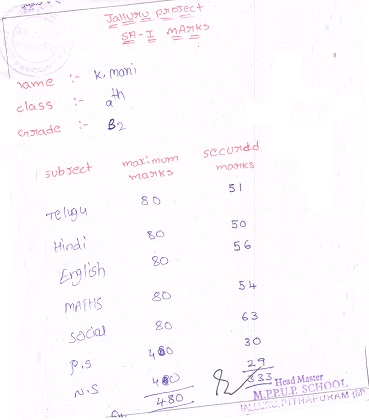 Jalluru project
SA-I MARKS
Name :- K. Mani
class :- 9th
Grade :- B2
subject maximum marks secured marks
Telugu 80 51
Hindi 80 50
English 80 56
MATHS 80 54
Social 80 63
P.S 40 30
N.S 40 29
480 333
Head Master
M.P.U.P. SCHOOL
JALLURU, PITHAPURAM (M)